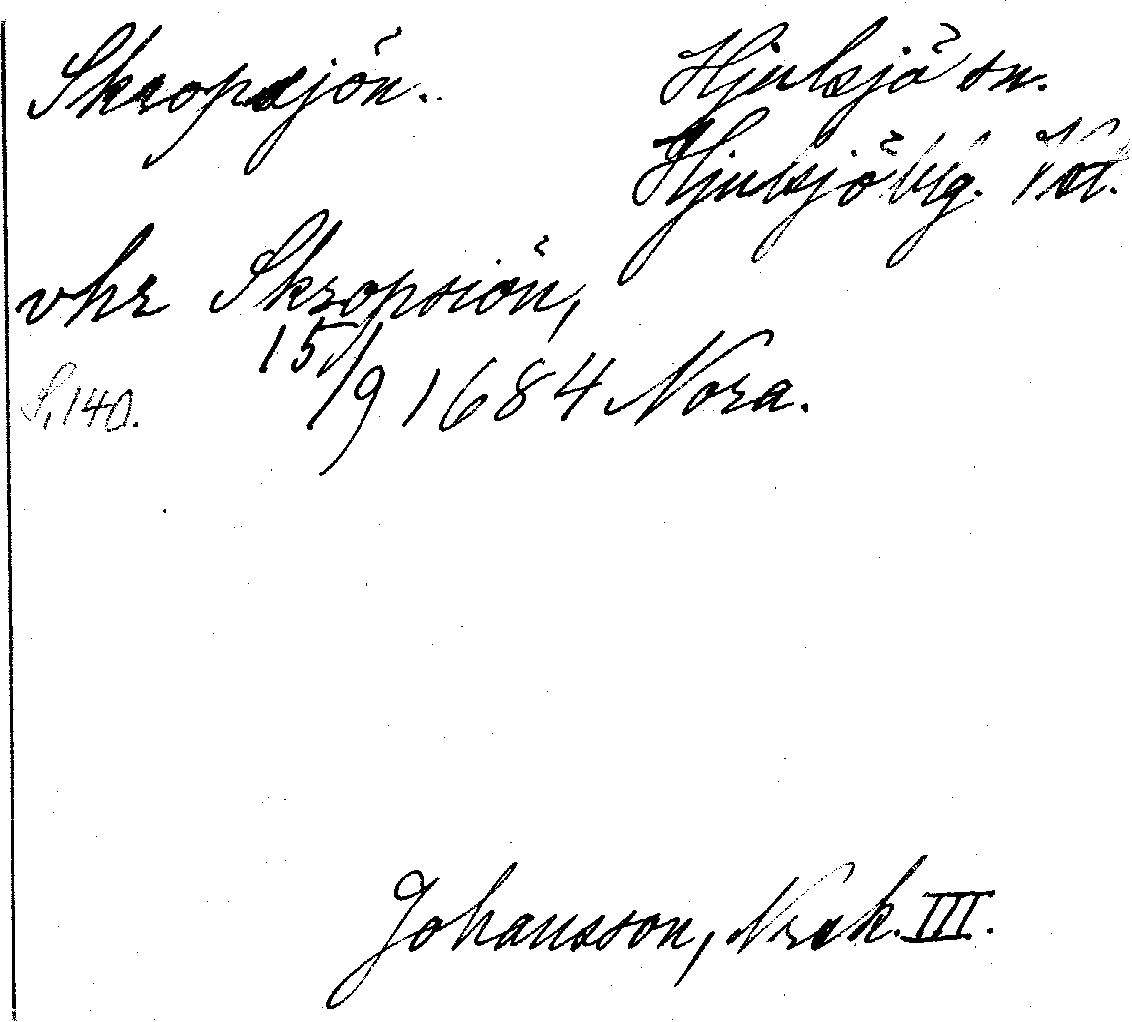 Skropsjön. Hjulsjö sn.
Hjulsjö blg. Vstl.
vhr Skropsiön,
15/9 1684 Nora.
S. 140.
Johansson, Nrck. III.